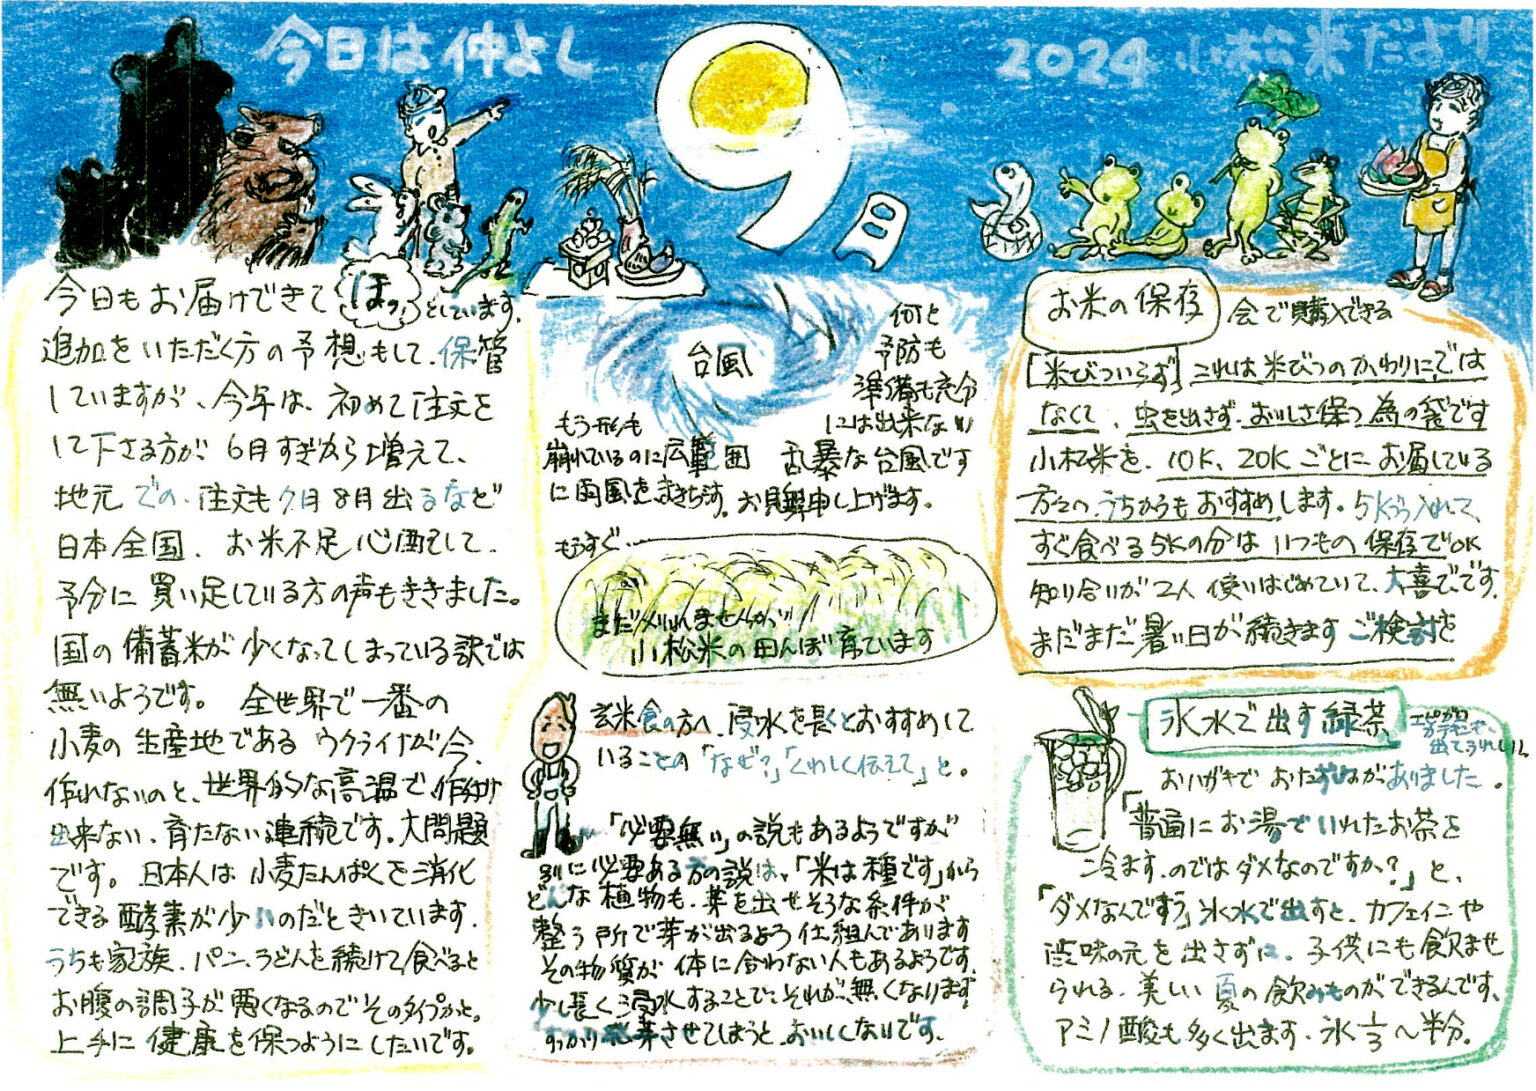 今日は仲よし
9月
2024 小松米だより
今日もお届けできてほっとしています。
追加をいただく方の予想もして、保管
していますが、今年は、初めて注文を
して下さる方が 6月すぎから増えて、
地元での注文も7月8月出るなど
日本全国、お米不足心配して、
予分に買い足している方の声もききました。
国の備蓄米が少くなってしまっている訳では
無いようです。 全世界で一番の
小麦の生産地であるウクライナが今、
作れないのと、世界的な高温で、作付け
出来ない、育たない連続です。大問題
です。日本人は小麦たんぱくを消化
できる酵素が少いのだときいています。
うちも家族、パン、うどんを続けて食べると
お腹の調子が悪くなるのでそのタイプかと。
上手に健康を保つようにしたいです。
台風
何と
予防も
準備も充分
には出来ない
乱暴な台風です
もう形も
崩れているのに広範囲
に雨風をまきちらす。お見舞申し上げます。
もうすぐ…
まだ刈りれませんが
小松米の田んぼ育ています
玄米食の方へ、浸水を長くとおすすめして
いることの「なぜ?」「くわしく伝えて」と。
「必要無い」の説もあるようですが
別に必要ある方の説は、「米は種です」から
どんな植物も、芽を出せそうな条件が
整う所で芽が出るよう仕組んであります
その物質が体に合わない人もあるようです。
少し長く浸水することで、それが、無くなります
すっかり発芽させてしまうと、おいしくないです。
お米の保存
会で購入できる
「米びついらず」これは米びつのかわりにでは
なくて、虫を出さず、おいしさ保つ為の袋です
小松米を、10K、20Kごとにお届けしている
方々のうちからもおすすめします。5Kずつ入れて、
すぐ食べる5Kの分はいつもの保存でOK
知り合いが2人使いはじめていて、大喜びです。
まだまだ暑い日が続きます ご検討を
氷水で出す緑茶
おハガキでおたずねがありました。
「普通にお湯でいれたお茶を
冷ます。のではダメなのですか?」と、
「ダメなんですう」氷水で出すと、カフェインや
渋味の元を出さずに、子供にも飲ませ
られる、美しい夏の飲みものができるんです、
アミノ酸も多く出ます。氷1/3〜半分。